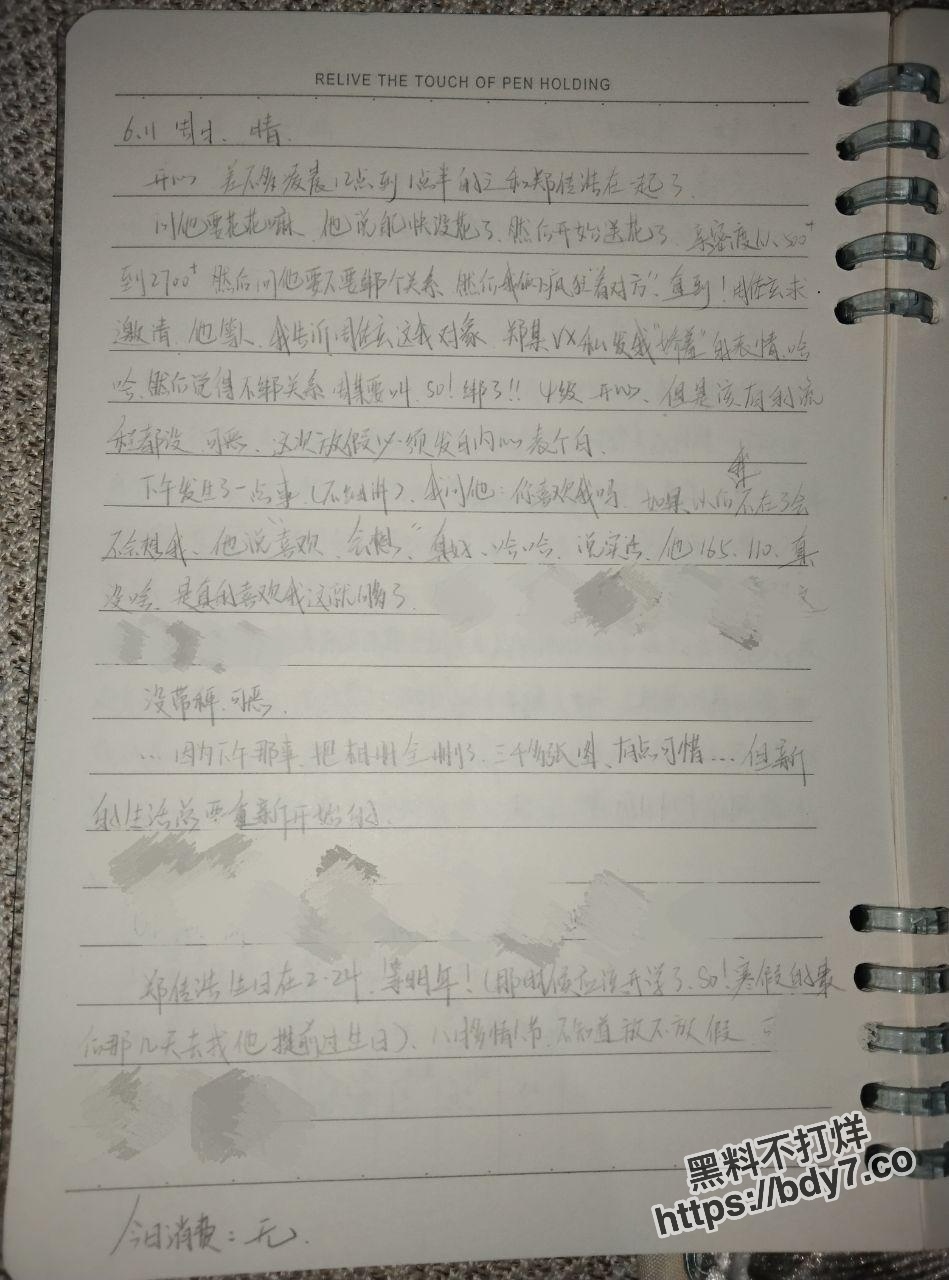 RELIVE THE TOUCH OF PEN HOLDING
6.11 周日. 晴.
开心 差不多凌晨12点到1点半的 和郑佳浩在一起了
问他要花花嘛. 他说能快没花了. 然后开始送花了. 亲密度从500+
到2700+ 然后问他要不要绑个关系. 然后我们疯狂"着对方". 直到! 周佳玄求
邀请. 他 我告诉周佳玄这我对象. 郑某VX私发我"娇羞"的表情. 哈
哈. 然后说得不绑关系 周某要叫. so! 绑了!! 4级 开心. 但是该有的流
程都没 可恶. 这次放假必须发自内心表个白.
下午发生了一点事 (不细讲). 我问他: 你喜欢我吗. 如果以后我不在了会
不会想我. 他说"喜欢. 会想." 真好. 哈哈. 说实话. 他165. 110. 真
没啥. 是真的喜欢我这就够了.
没带秤. 可恶.
... 因为下午那事. 把相册全删了. 三千多张图. 有点可惜... 但新
的生活总要重新开始的.
郑佳浩生日在2.24. 等明年! (那时候应该开学了. so! 寒假的最
后那几天去找他提前过生日). 情人节. 不知道放不放假
今日消费: 无.
黑料不打烊
https://bdy7.co